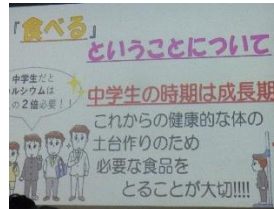 「食べる」
ということについて
中学生だと
ルシウムは
の2倍必要！！
中学生の時期は成長期
これからの健康的な体の
土台作りのため
必要な食品を
とることが大切!!!!